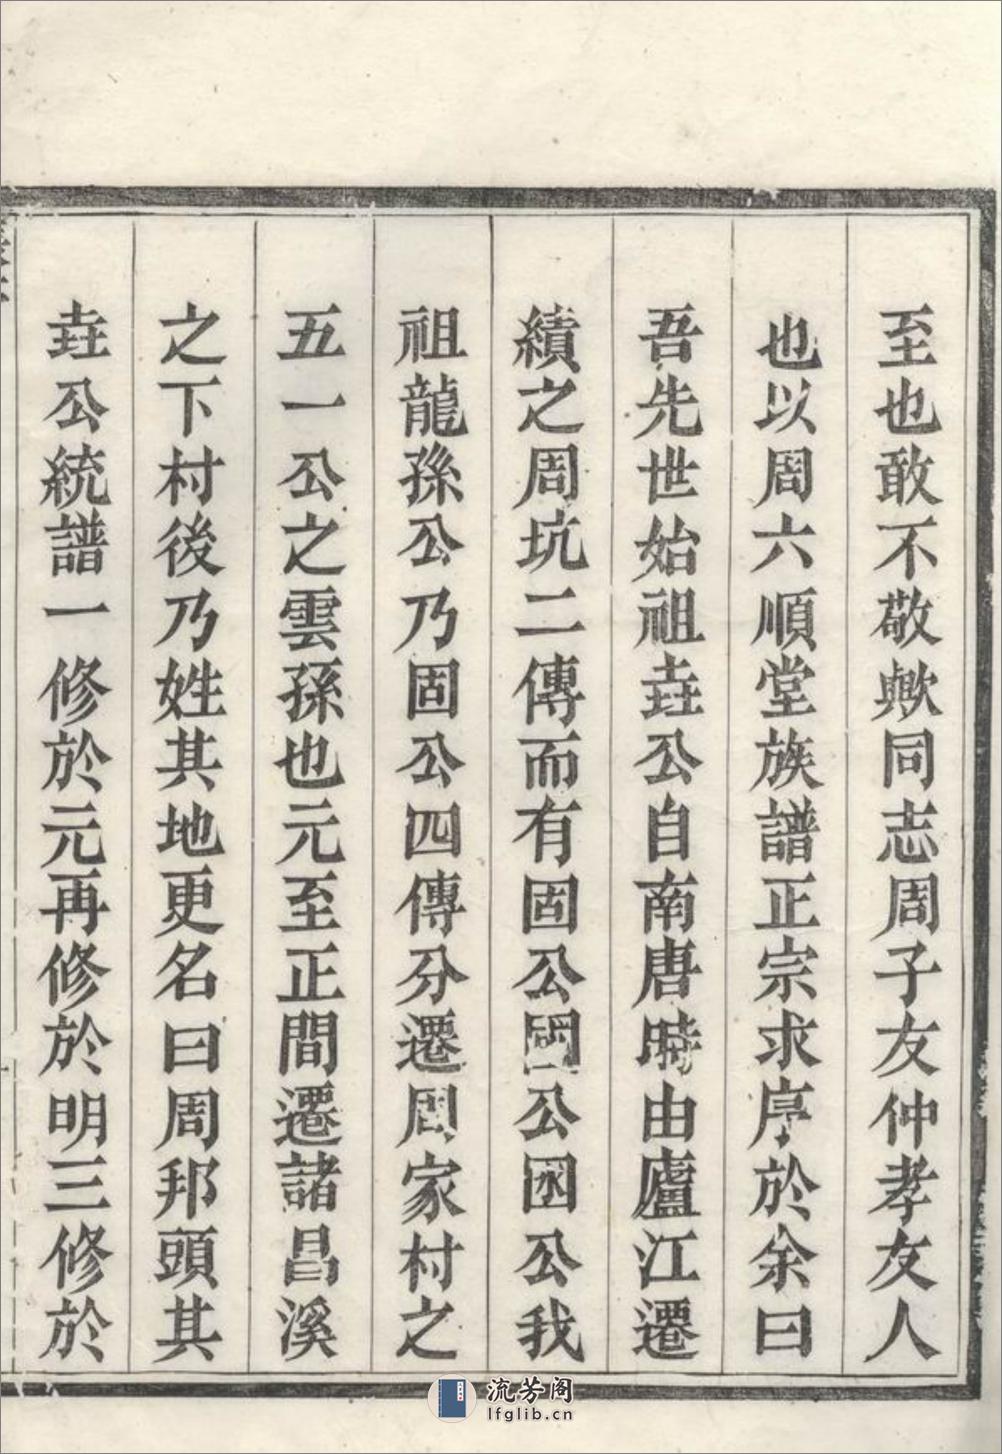 至也敢不敬歟同志周子友仲孝友人
也以周六順堂族譜正宗求序於余曰
吾先世始祖垚公自南唐時由廬江遷
績之周坑二傳而有固公公公我
祖龍孫公乃固公四傳分遷周家村之
五一公之雲孫也元至正間遷諸昌溪
之下村後乃姓其地更名曰周邦頭其
垚公統譜一修於元再修於明三修於
流芳阁
lfglib.cn